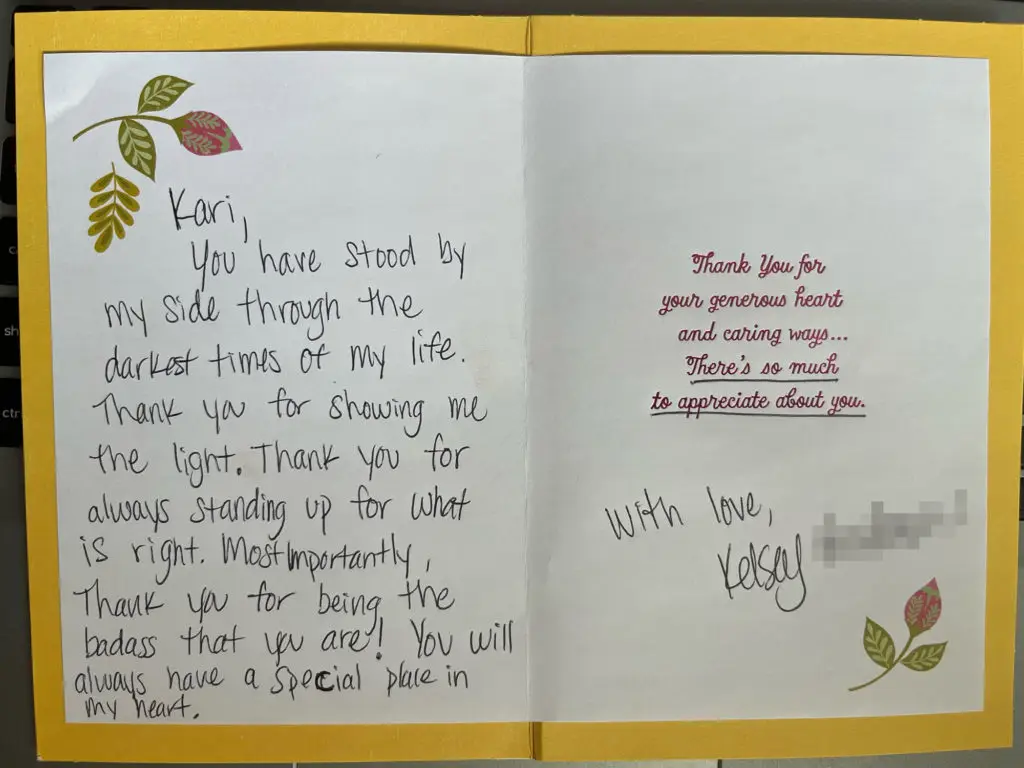 Kari,
You have stood by
my side through the
darkest times of my life.
Thank you for showing me
the light. Thank you for
always standing up for what
is right. Most importantly,
Thank you for being the
badass that you are! You will
always have a special place in
my heart.
Thank You for
your generous heart
and caring ways...
There's so much
to appreciate about you.
With love,
Kelsey
sh
ctr